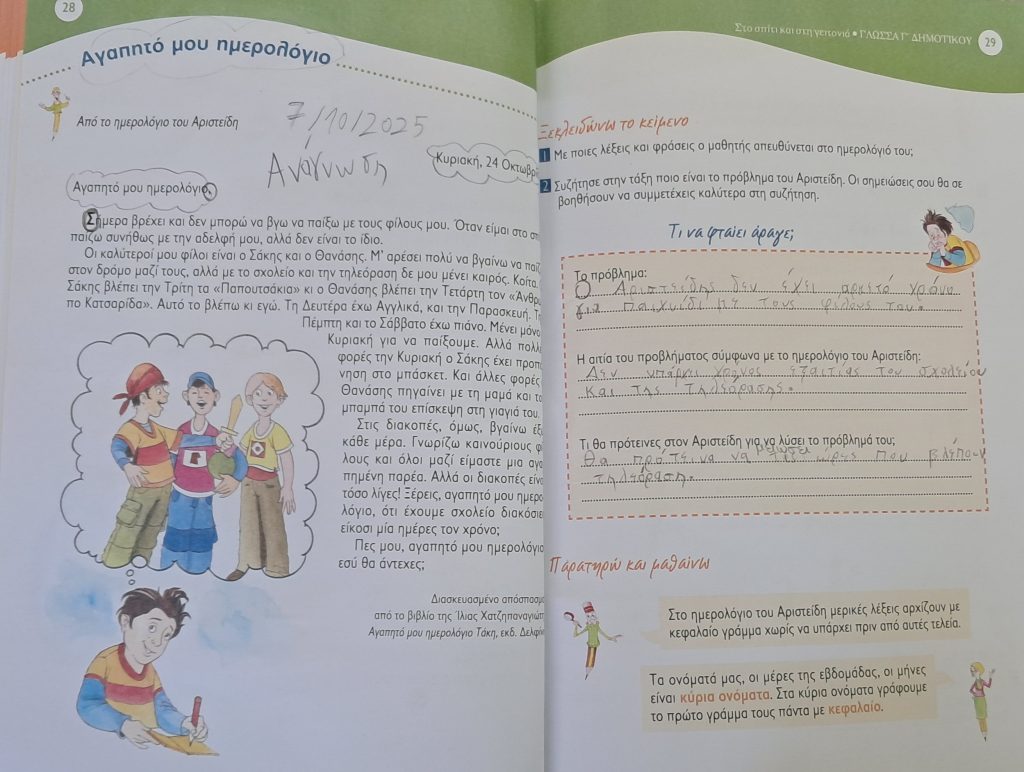 28
Αγαπητό μου ημερολόγιο
Από το ημερολόγιο του Αριστείδη
7/10/2025
Ανάγνωση
Κυριακή, 24 Οκτωβρί
Αγαπητό μου ημερολόγιο,
Σήμερα βρέχει και δεν μπορώ να βγω να παίξω με τους φίλους μου. Όταν είμαι στο σπί
παίζω συνήθως με την αδελφή μου, αλλά δεν είναι το ίδιο.
Οι καλύτεροί μου φίλοι είναι ο Σάκης και ο Θανάσης. Μ' αρέσει πολύ να βγαίνω να παίζ
στον δρόμο μαζί τους, αλλά με το σχολείο και την τηλεόραση δε μου μένει καιρός. Κοίτα,
Σάκης βλέπει την Τρίτη τα «Παπουτσάκια» κι ο Θανάσης βλέπει την Τετάρτη τον «Άνθρω
πο Κατσαρίδα». Αυτό το βλέπω κι εγώ. Τη Δευτέρα έχω Αγγλικά, και την Παρασκευή. Τη
Πέμπτη και το Σάββατο έχω πιάνο. Μένει μόνο
Κυριακή για να παίξουμε. Αλλά πολλέ
φορές την Κυριακή ο Σάκης έχει προπό
νηση στο μπάσκετ. Και άλλες φορές
Θανάσης πηγαίνει με τη μαμά και το
μπαμπά του επίσκεψη στη γιαγιά του.
Στις διακοπές, όμως, βγαίνω έξω
κάθε μέρα. Γνωρίζω καινούριους φί
λους και όλοι μαζί είμαστε μια αγα
πημένη παρέα. Αλλά οι διακοπές είνα
τόσο λίγες! Ξέρεις, αγαπητό μου ημερο
λόγιο, ότι έχουμε σχολείο διακόσιε
είκοσι μία ημέρες τον χρόνο;
Πες μου, αγαπητό μου ημερολόγιο
εσύ θα άντεχες;
Διασκευασμένο απόσπασμα
από το βιβλίο της Ίλιας Χατζηπαναγιώτη
Αγαπητό μου ημερολόγιο Τάκη, εκδ. Δελφίνι
Στο σπίτι και στη γειτονιά • ΓΛΩΣΣΑ Γ΄ ΔΗΜΟΤΙΚΟΥ
29
Ξεκλειδώνω το κείμενο
1 Με ποιες λέξεις και φράσεις ο μαθητής απευθύνεται στο ημερολόγιό του;
2 Συζήτησε στην τάξη ποιο είναι το πρόβλημα του Αριστείδη. Οι σημειώσεις σου θα σε
βοηθήσουν να συμμετέχεις καλύτερα στη συζήτηση.
Τι να φταίει άραγε;
Το πρόβλημα:
Ο Αριστείδης δεν έχει αρκετό χρόνο
για παιχνίδι με τους φίλους του.
Η αιτία του προβλήματος σύμφωνα με το ημερολόγιο του Αριστείδη:
Δεν υπάρχει χρόνος εξαιτίας του σχολείου
και της τηλεόρασης.
Τι θα πρότεινες στον Αριστείδη για να λύσει το πρόβλημά του;
Θα πρότεινα να μειώσει τις ώρες που βλέπουν
τηλεόραση.
Παρατηρώ και μαθαίνω
Στο ημερολόγιο του Αριστείδη μερικές λέξεις αρχίζουν με
κεφαλαίο γράμμα χωρίς να υπάρχει πριν από αυτές τελεία.
Τα ονόματά μας, οι μέρες της εβδομάδας, οι μήνες
είναι κύρια ονόματα. Στα κύρια ονόματα γράφουμε
το πρώτο γράμμα τους πάντα με κεφαλαίο.